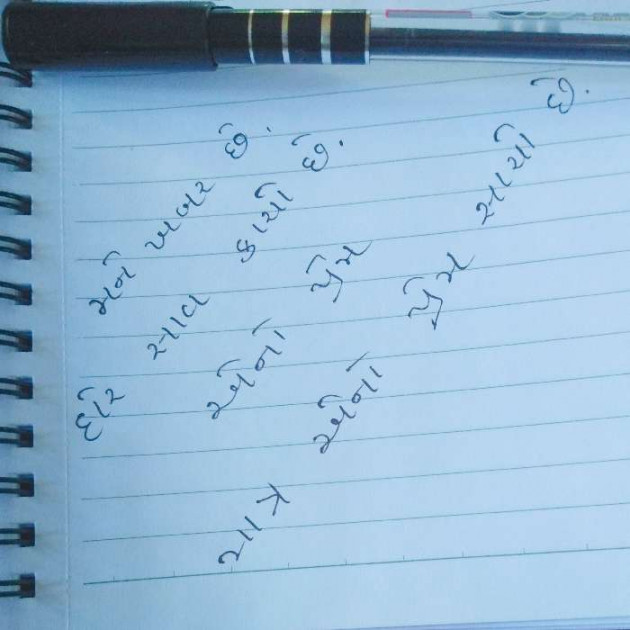 મને ખબર છે.
દોર સાવ કાચો છે.
એનો પ્રેમ
એનો પ્રેમ સાચો છે.